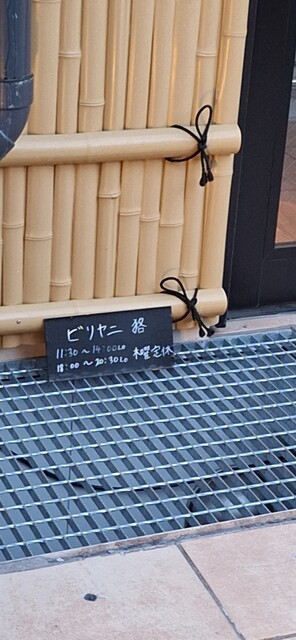 ビリヤニ 猪
11:30〜14:00LO
18:00〜20:30LO 木曜定休